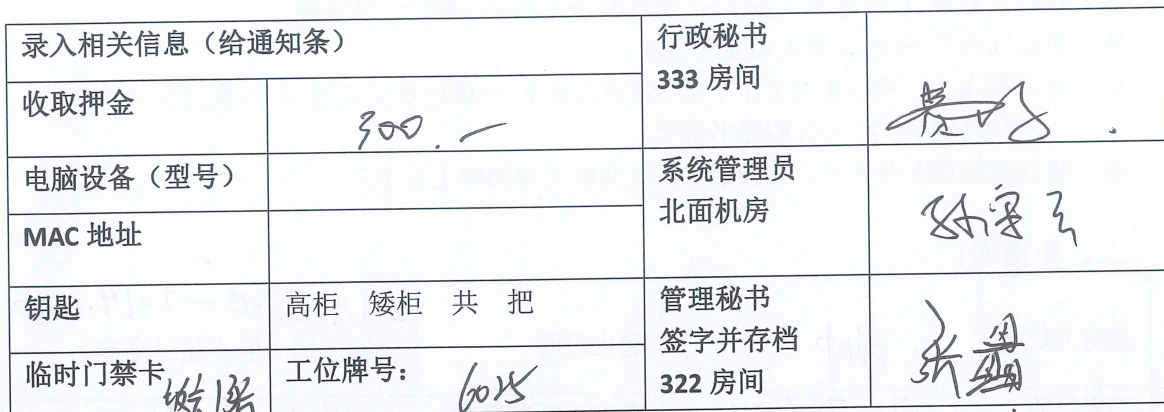 录入相关信息（给通知条）
行政秘书
333 房间
收取押金
300.一
电脑设备（型号）
系统管理员
北面机房
孙宇
MAC 地址
钥匙
高柜 矮柜 共 把
管理秘书
签字并存档
322 房间
张
临时门禁卡
工位牌号：
6025